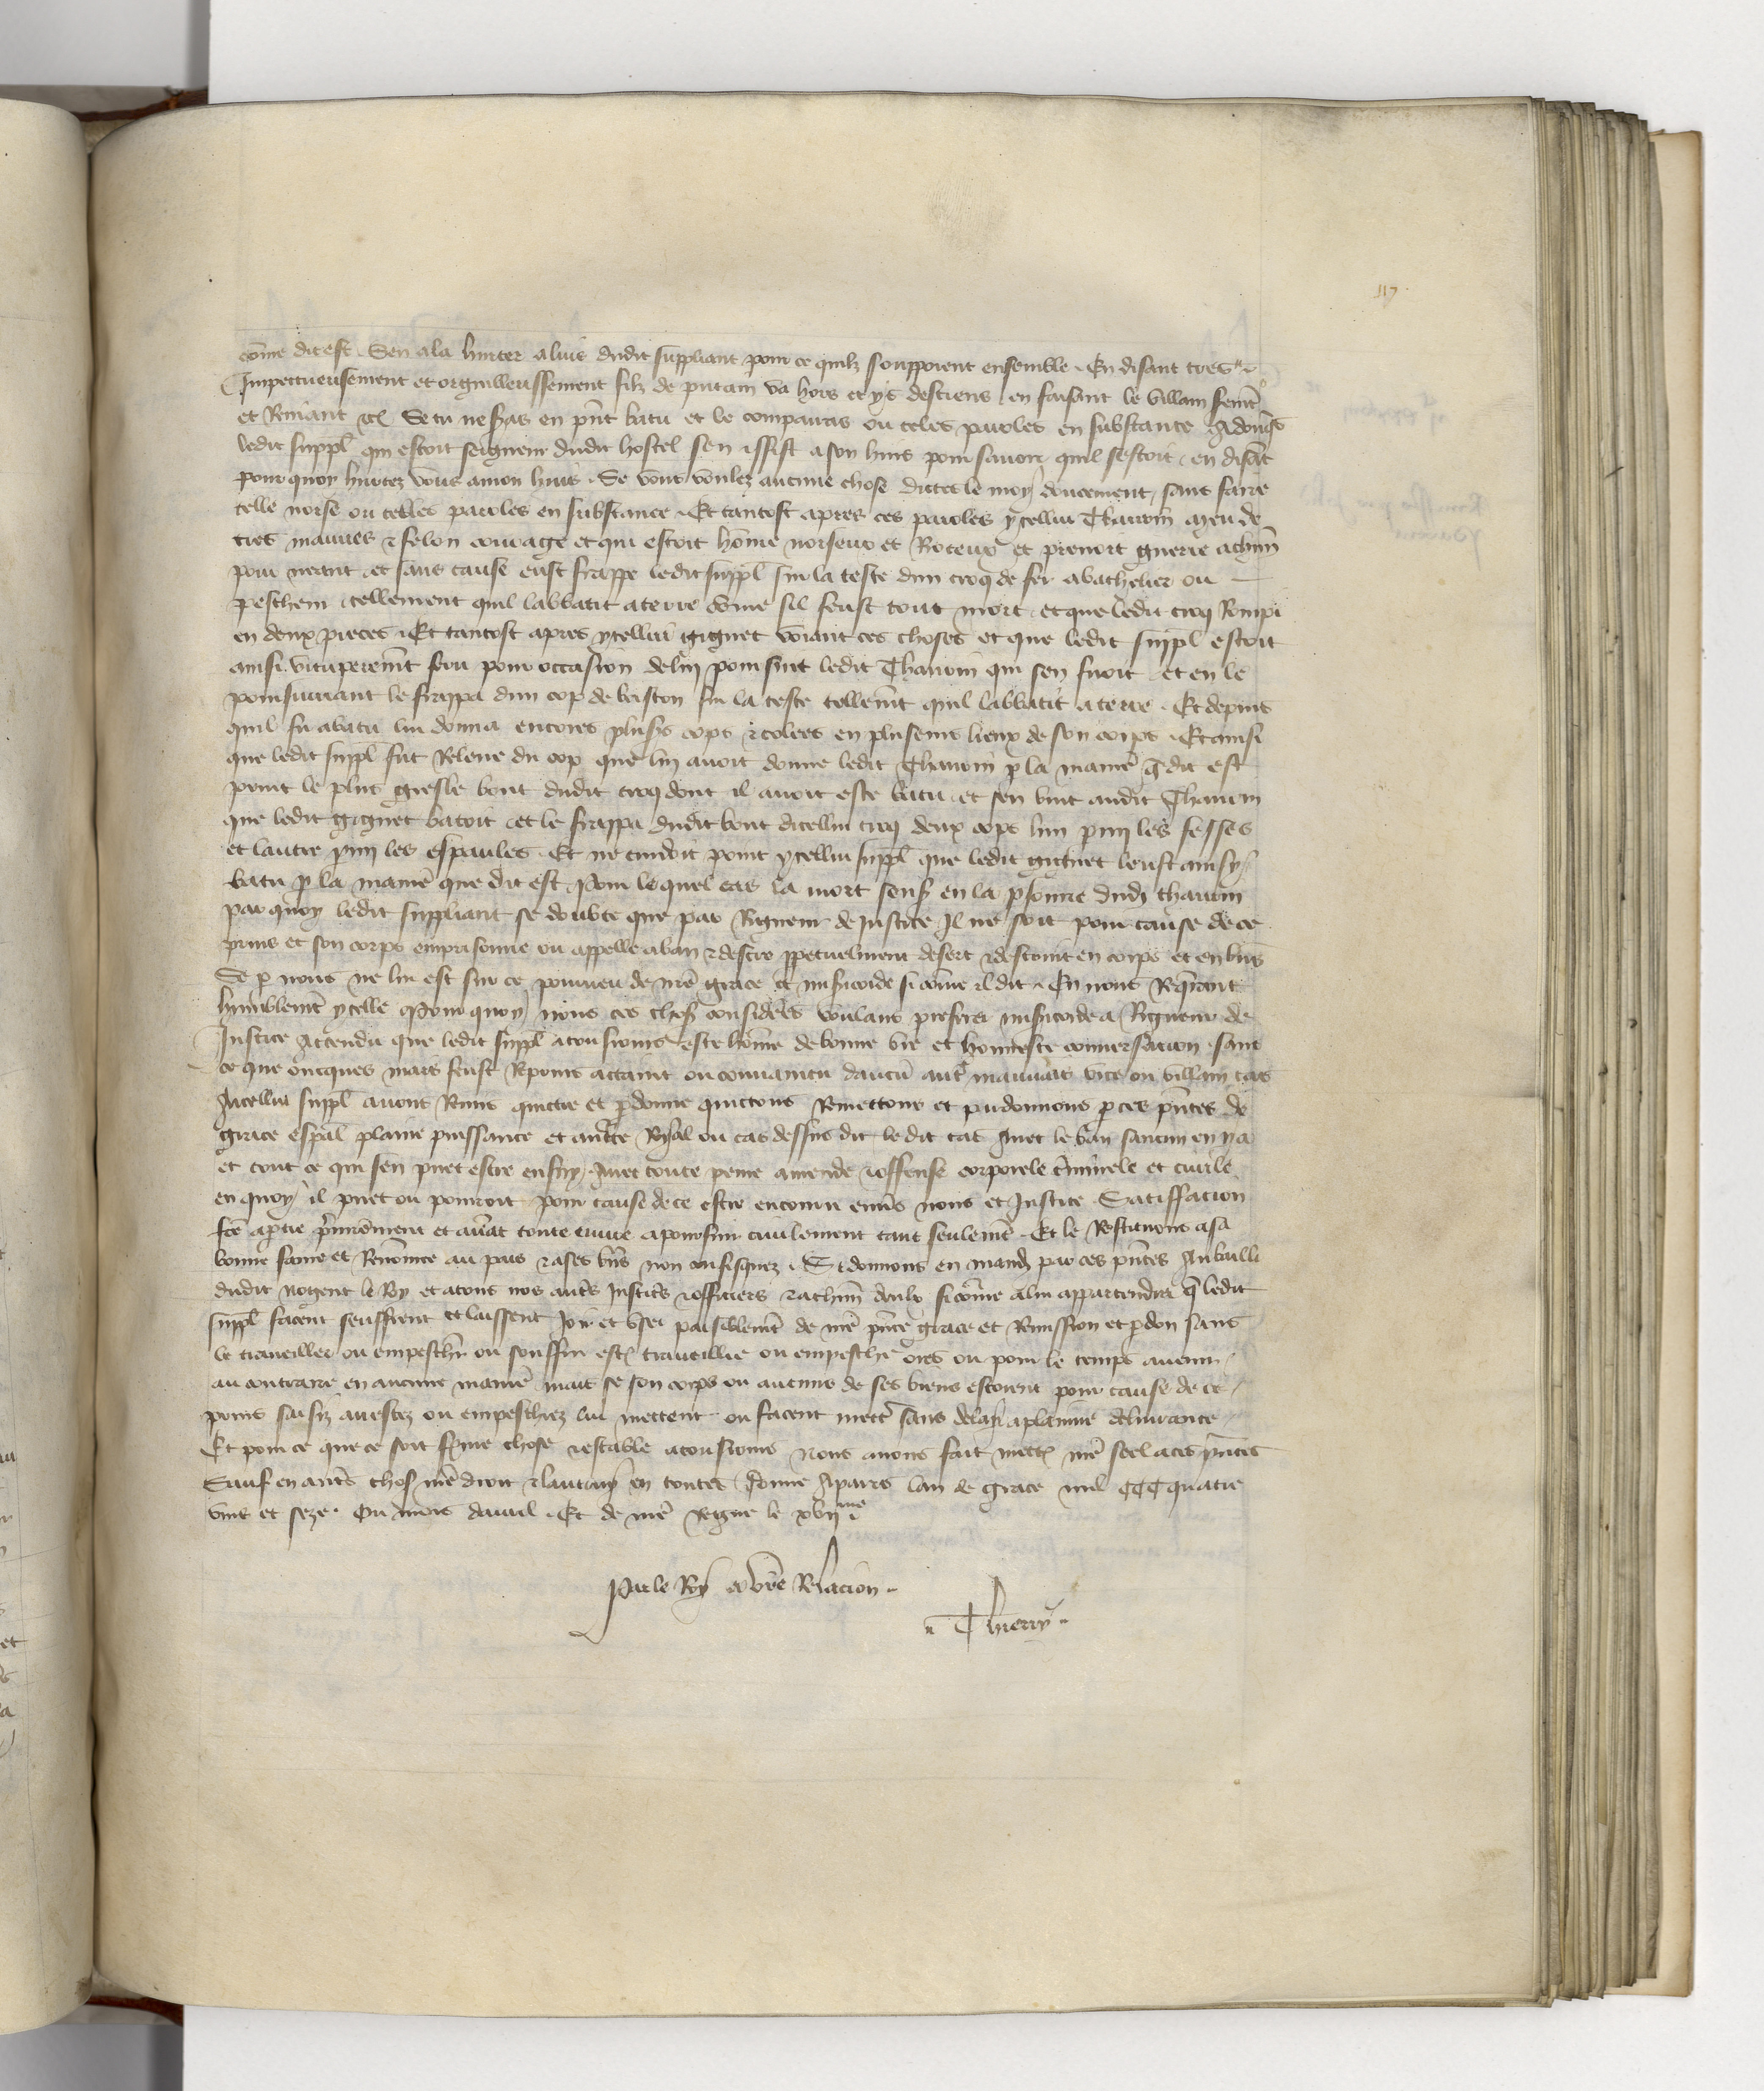 117
come dit est. Sen ala hurter aluis dudit suppliant pour ce quilz souppoient ensemble. En disant tres
Impetueusement et orguilleussement filz de putain va hors et ys desciens en faisant le villam serment
et Reniant etc Se tu ne seras en pnt batu et le comparras ou teles paroles en substance Adonqs
ledit suppl qui estoit seigneur dudit hostel sen issist a son huis pour savoir quil sestoit en disant
pour quoy hurtez vous amon huis. Se vous voulez aucune chose dictes le moy doucement, sans faire
telle norse ou telles paroles en substance. Et tantost apres ces paroles ycellui Thauvin meu de
tres mauves & felon courage et qui estoit home norseux et Roteux et prenoit guerre achun
pour neant et sans cause eust frappe ledit suppl sur la teste dun croq de fer abathelier ou
pescheur tellement quil labbatit a terre come sil feust tout mort et que ledit croq Rompi
en deux pieces. Et tantost apres ycellui Gignet voiant ces choses et que ledit suppl estoit
ainsi vituperemt feru pour occasion deluy poursuit ledit Thauvin qui sen fuoit et en le
poursuivant le frappa dun cop de baston sur la teste tellemt quil labbatit a terre. Et depuis
quil fu abatu lui donna encores plus's cops & colees en pluseurs lieux de son corps. Et ainsi
que ledit suppl fut Releve du cop que luy avoit donne ledit Thauvin p la maniere q dit est
print le plus gresle bout dudit croq dont il avoit este batu et sen vint audit Thauvin
que ledit Gignet batoit et le frappa dudit bout dicellui croq deux cops lun p my les fesses
et lautre p my les espaules. Et ne cuidoit point ycellui suppl que ledit Gignet leust ainsy
batu p la maniere que dit est. Pour lequel cas la mort sensuy en la psonne dudit Thauvin
par quoy ledit suppliant se doubte que par Rigueur de Justice Il ne soit pour cause de ce
prins et son corps emprisonne ou appelle aban & destre ppetuelment desert & destruit en corps et en bns
Se p nous ne lui est sur ce pourveu de nre grace et misericorde si come il dit. En nous Requerant
humblemt ycelle Pour quoy nous ces choses considerees voulans preferer misericorde a Rigueur de
Justice Attendu que ledit suppl a tousiours este home de bonne vie et honneste conversacion sans
ce que oncques mais feust Reprins actaint ou convaincu daucun autre mauvais vice ou villain cas
Aicellui suppl avons Remis quictie et pdonne quictons Remettons et pardonnons p ces pntes de
grace espal plaine puissance et auctte Royal ou cas dessus dit le dit cas Avec le ban saucun en ya
et tout ce qui sen puet estre ensuy Avec toute peine amende & offense corporele criminele et civile
en quoy il puet ou pourroit pour cause de ce estre encouru envers nous et Justice Satisfacion
fce aptie primierement et avat toute euvre a poursuir civilement tant seulemt. Et le Restituons asa
bonne fame et Renomee au pais & ases bns non confisquez. Si donnons en mandt par ces pntes Au bailli
dudit Nogent le Roy et atous nos autres Justiciers & officiers & achun deulx si come alui appartendra q ledit
suppl facent seuffrent et laissent Joir et user paisiblemt de nre pnte grace et Remission et pdon sans
le travueiller ou empeschier ou souffrir estre travueillie ou empeschie ores ou pour le temps avenir
au contraire en aucune maniere mais se son corps ou aucuns de ses biens estoient pour cause de ce
prins saisiz arrestez ou empeschiez lui mettent ou facent mettre sans delay a plainne delivrance
Et pour ce que ce soit ferme chose & estable a tousiours Nous avons fait mettre nre seel a ces pntes
Sauf en autres choses nre droit & lautruy en toutes. Donne Aparis lan de grace mil CCC quatre
vins et seze. Ou mois davril. Et de nre Regne le xvjme
Par le Roy a vre Relacion.
Thierry